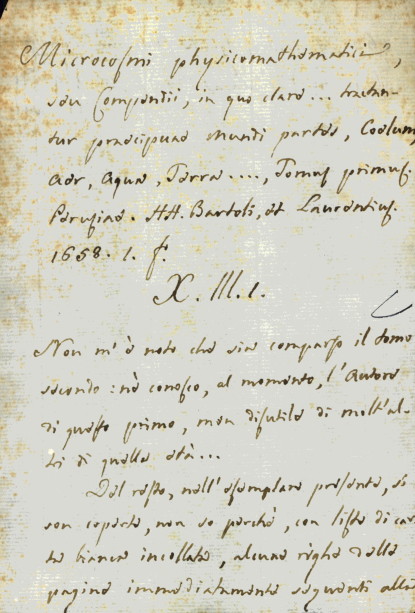 Microcosmi physicomathematici,
seu Compendii, in quo clare... tractan-
tur præcipuae Mundi partes, Coelum,
Aer, Aqua, Terra...., Tomus primus.
Perusiae. HH. Bartoli, et Laurentius.
1658. 1. f.
X. III. 1.
Non m'è noto che sia comparso il tomo
secondo: nè conosco, al momento, l'Autore
di questo primo, men disutile di molt'al-
tri di quella età...
Del resto, nell'esemplare presente, si
son coperte, non so perchè, con liste di car-
ta bianca incollate, alcune righe delle
pagine immediatamente seguenti alla